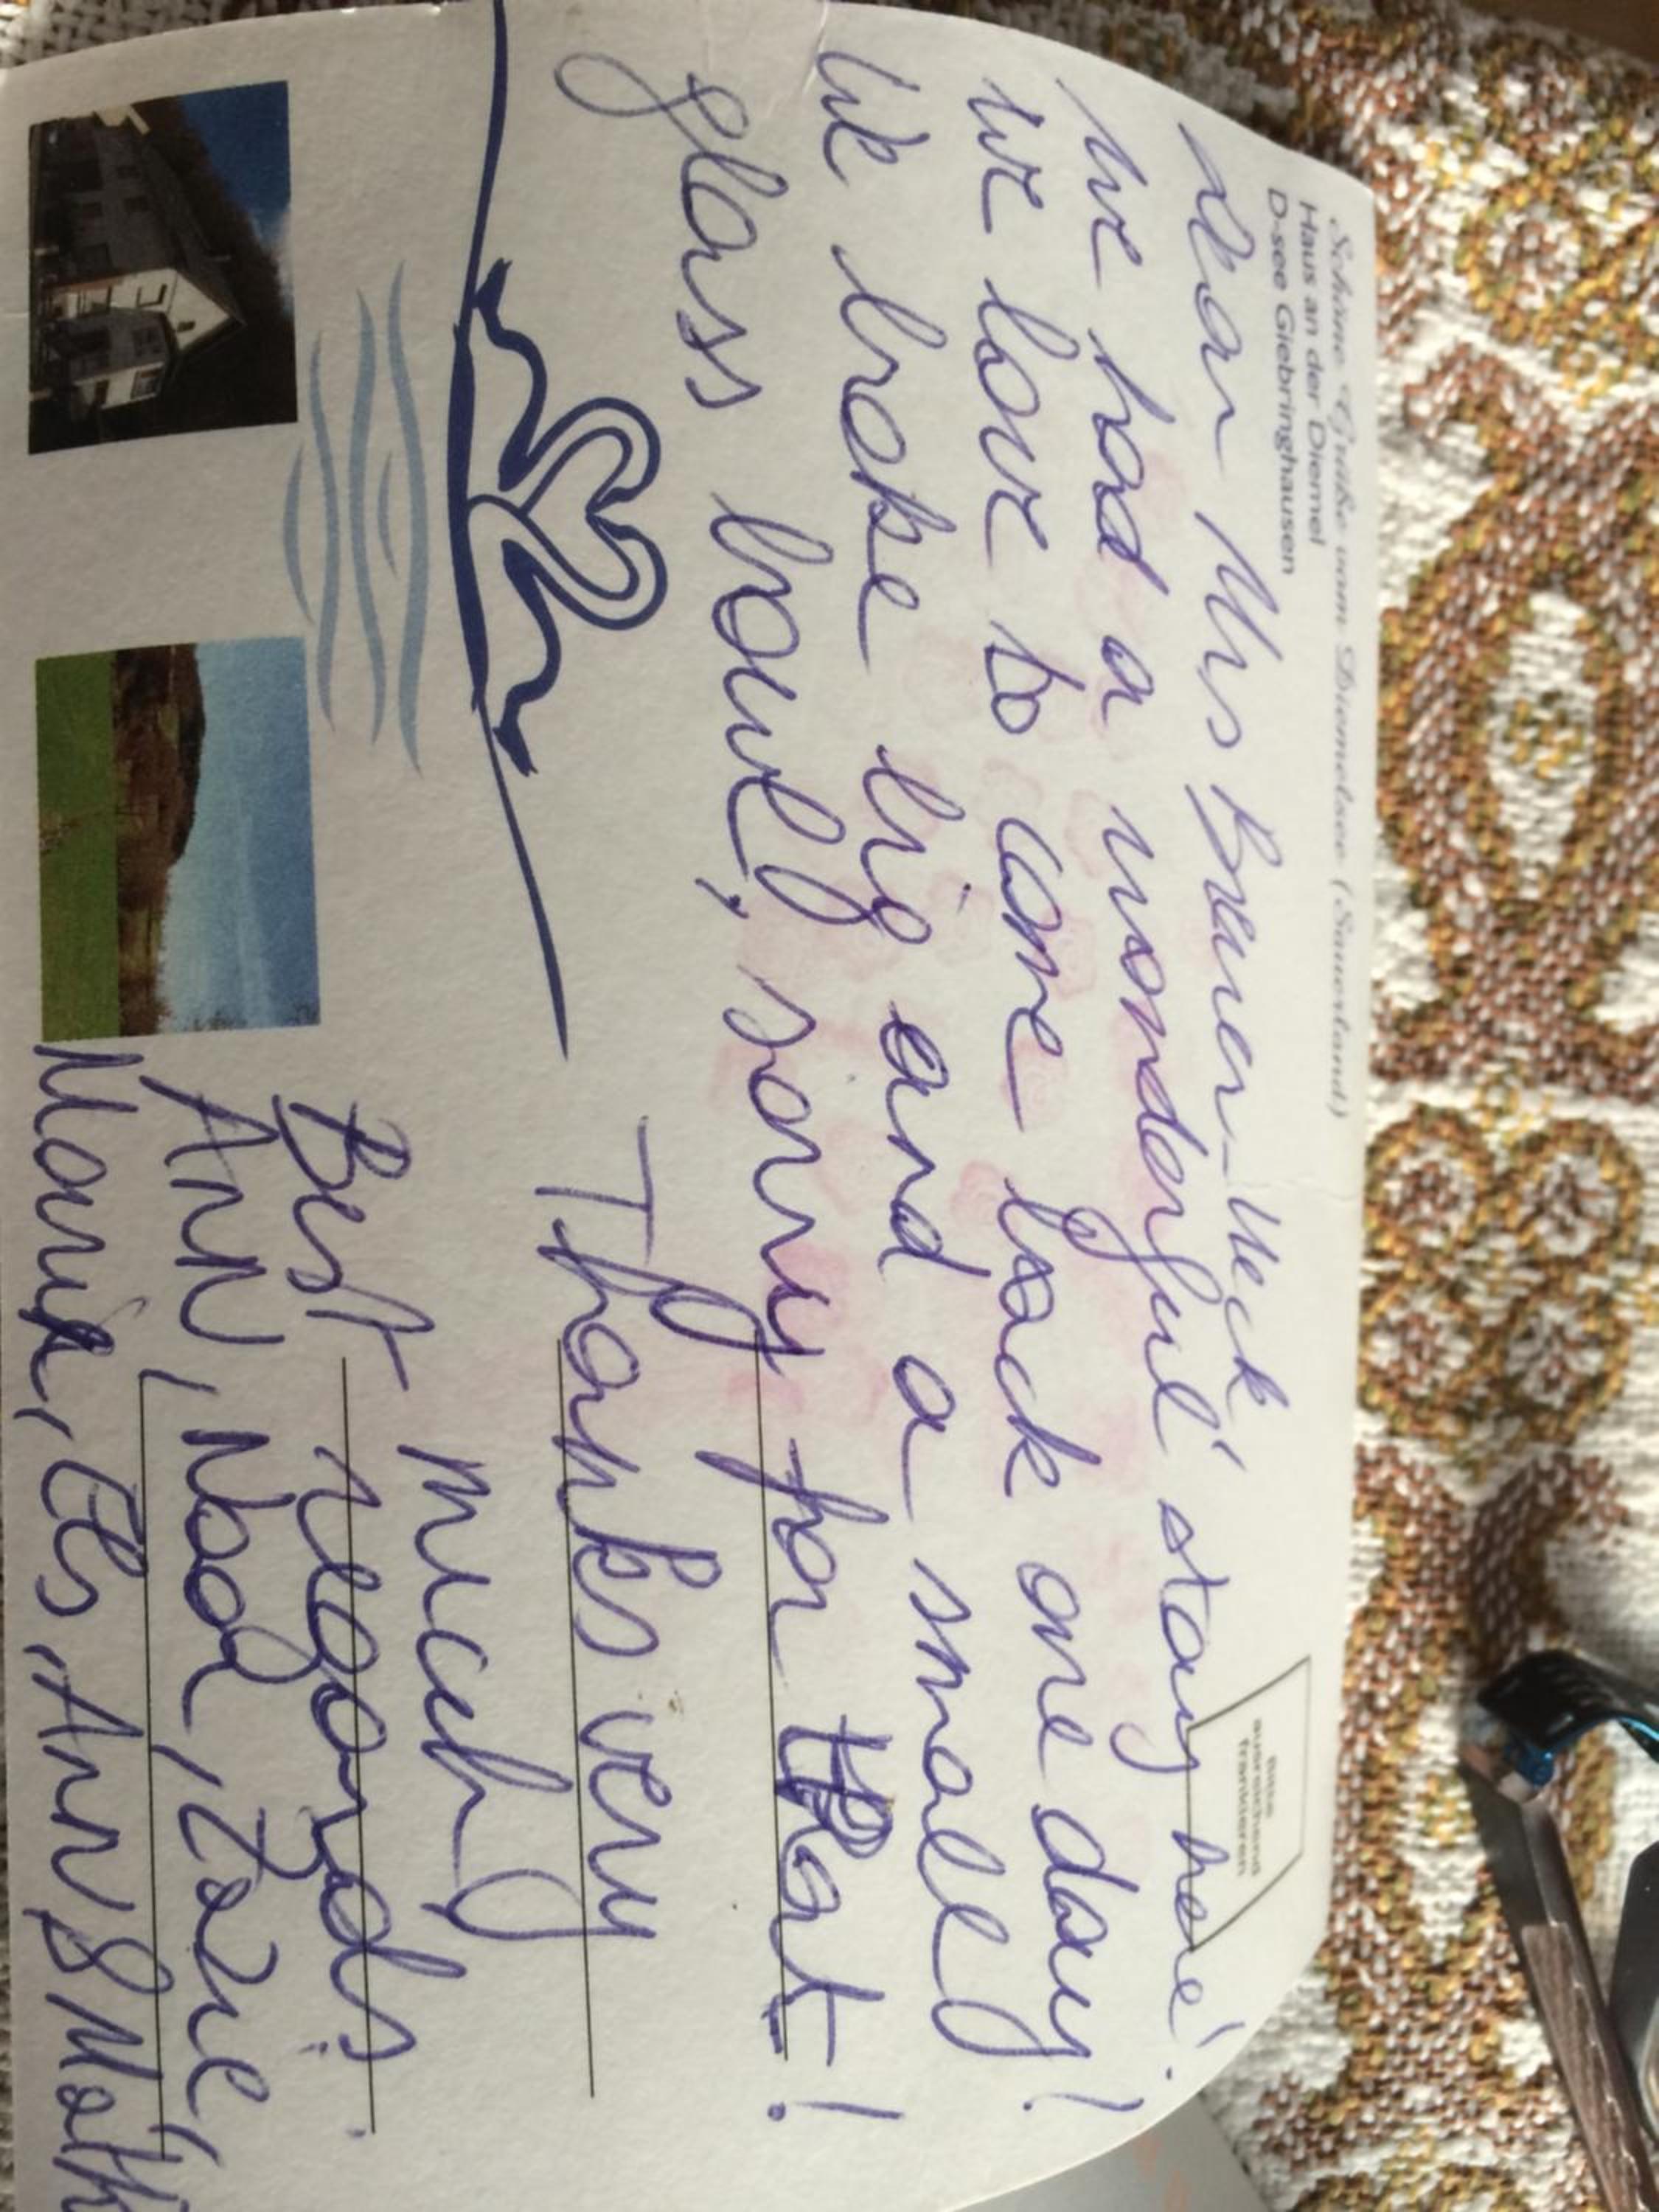 Schöne Grüße vom Diemelsee (Sauerland)
Haus an der Diemel
D-see Giebringhausen
Bitte
ausreichend
frankieren
Dear Mrs Brauer-
we had a wonderful stay here!
we love to come back one day!
We broke big and a small
glass bowl, sorry for that!
Thanks very
much
Best regards.
Ann, Noa,
Marie, Els, Ann &